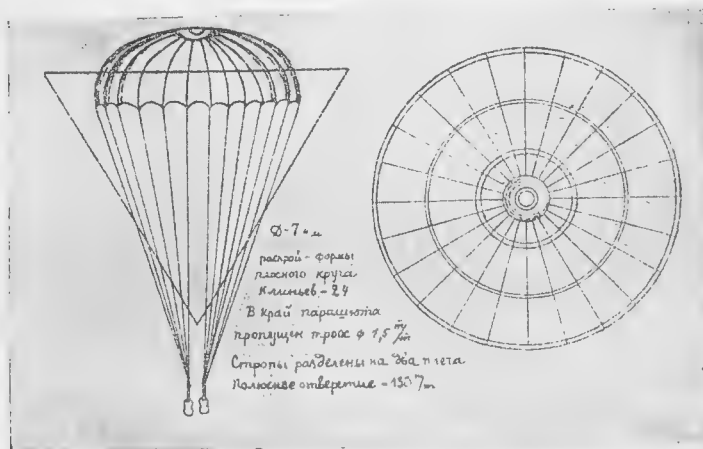 Ø-7 м
раскрой - формы
плоского круга
Клиньев - 24
В край парашюта
пропущен трос ф 1,5 m/m
Стропы разделены на два плеча
Полюсное отверстие -